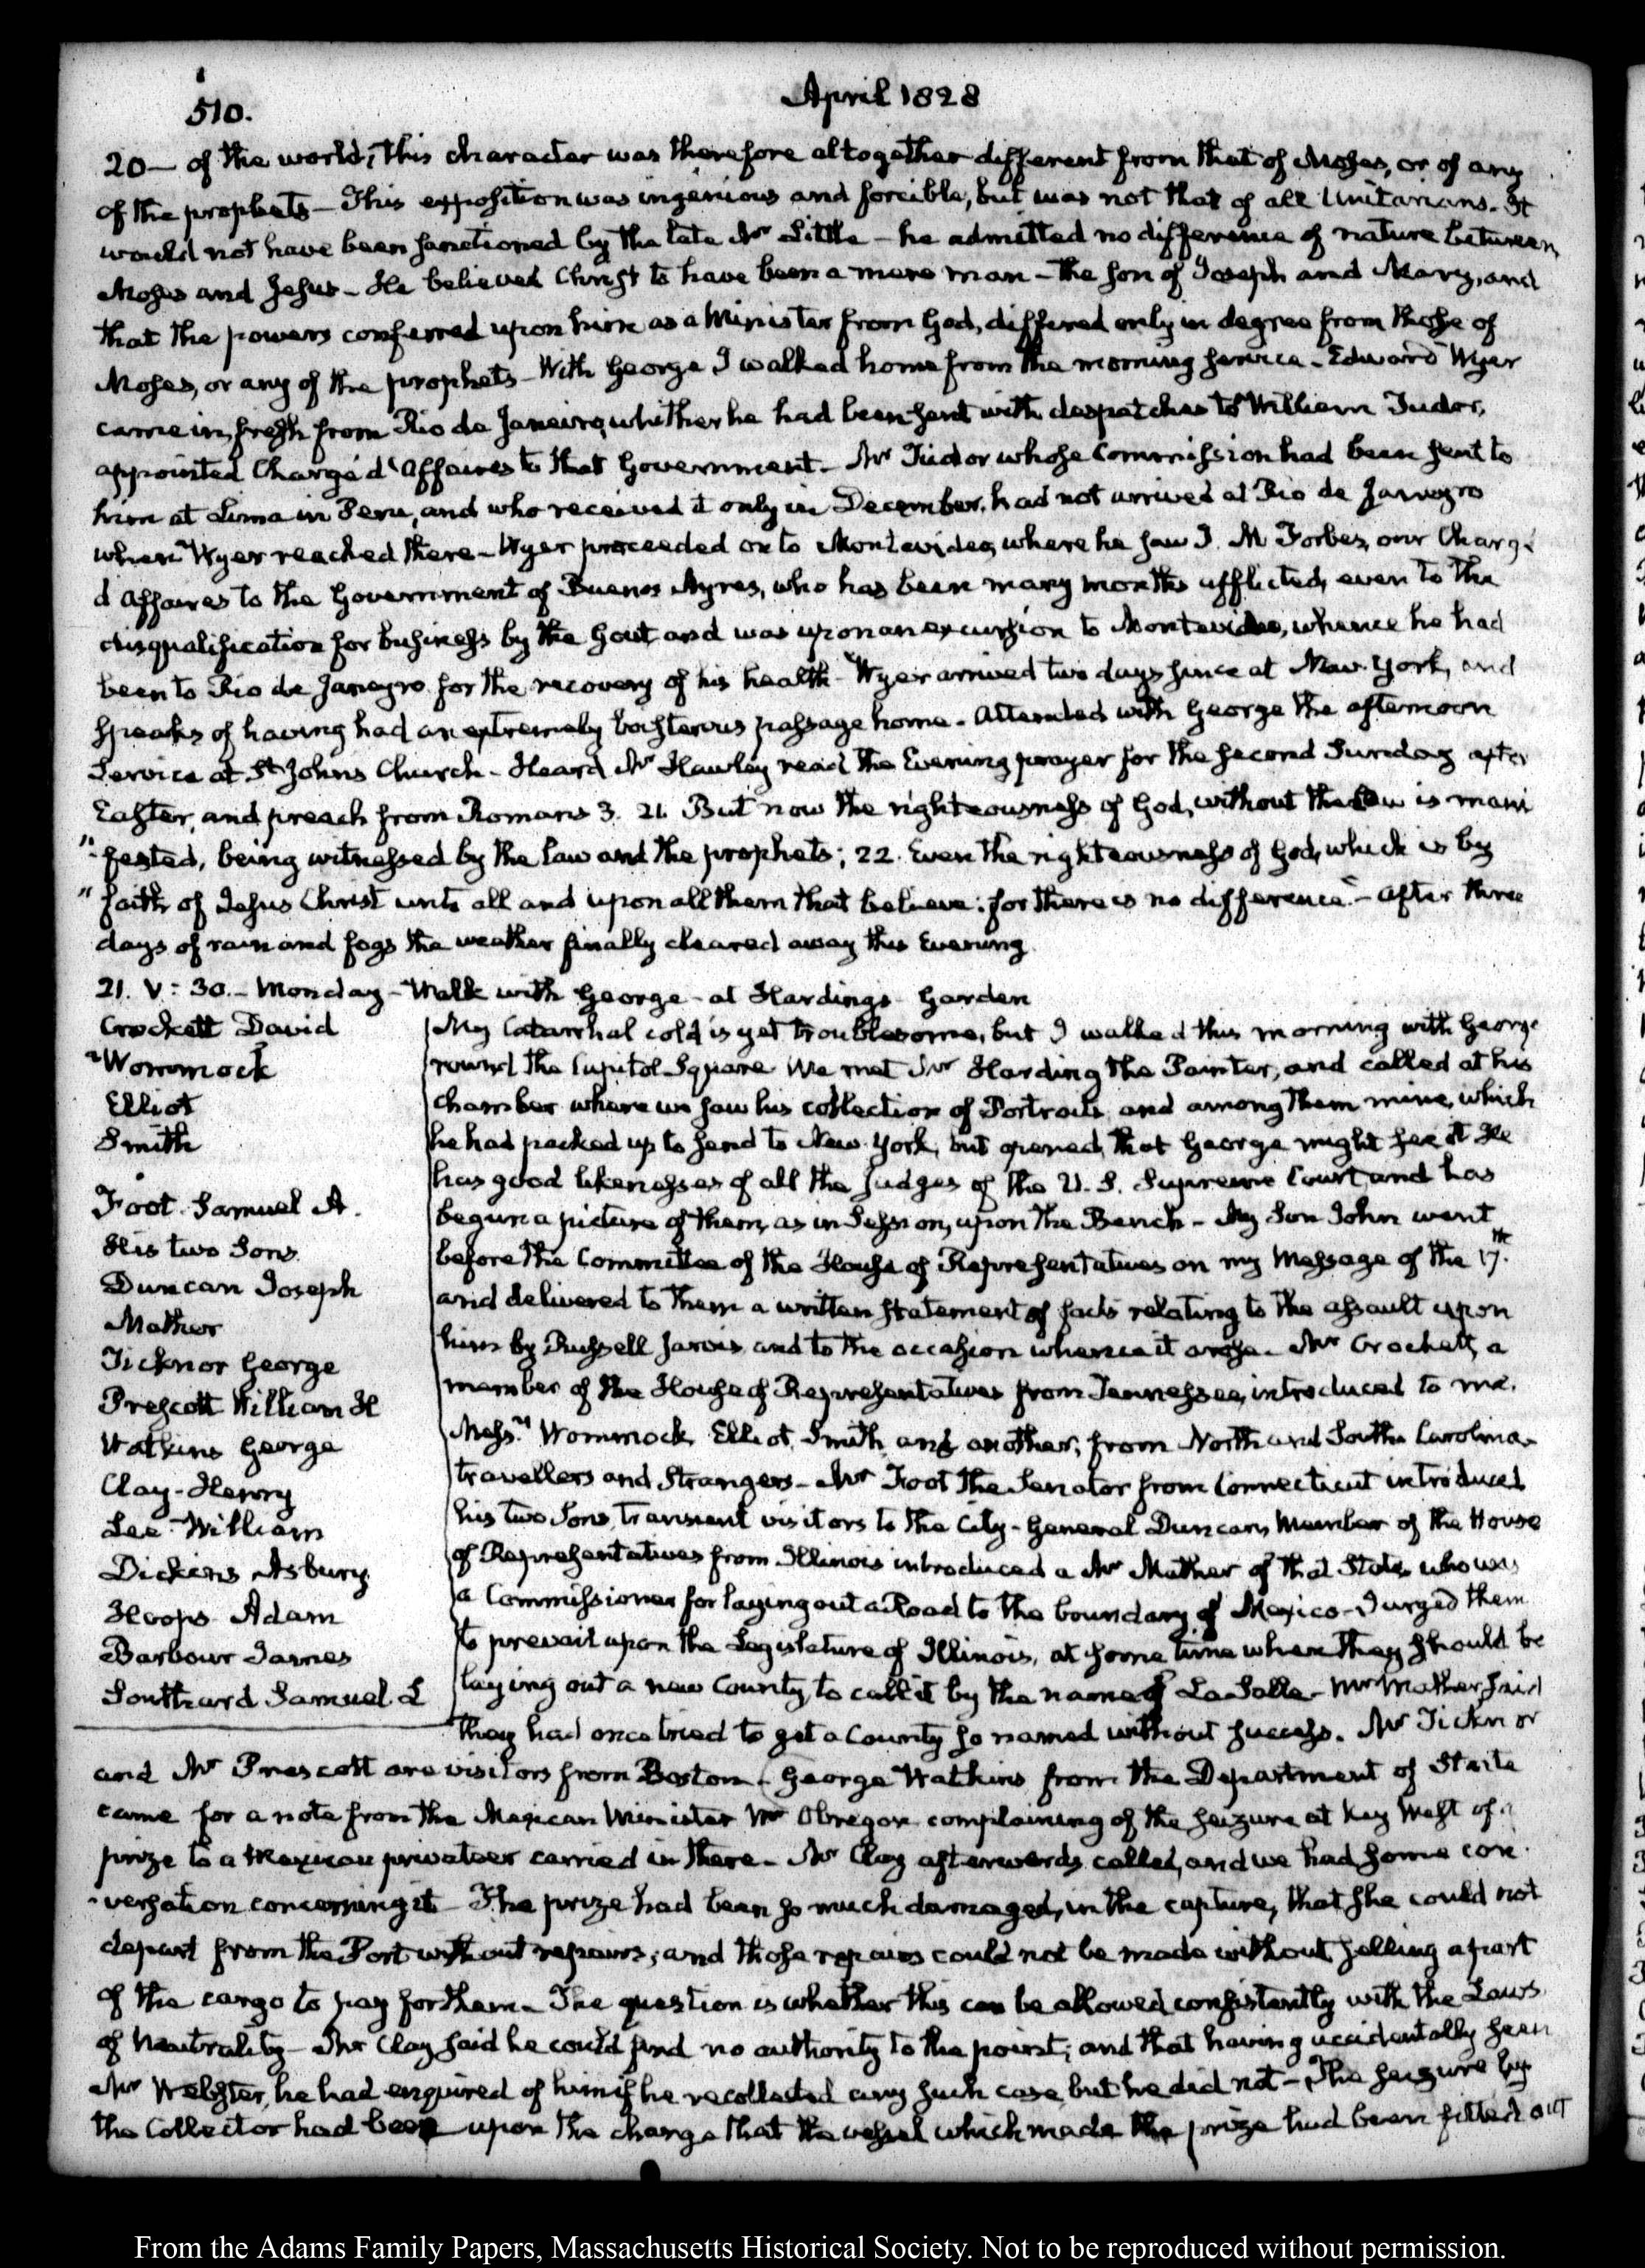 510.
April 1828
20— of the world; this character was therefore altogether different from that of Moses, or of any
of the prophets— This exposition was ingenious and forcible, but was not that of all Unitarians. It
would not have been sanctioned by the late Mr Little— he admitted no difference of nature between
Moses and Jesus— He believed Christ to have been a mere man— the son of Joseph and Mary, and
that the powers conferred upon him as a Minister from God, differed only in degree from those of
Moses, or any of the prophets— With George I walked home from the morning service. Edward Wyer
came in, fresh from Rio de Janeiro, whither he had been sent with despatches to William Tudor,
appointed Chargé d'Affaires to that Government— Mr Tudor whose Commission had been sent to
him at Lima in Peru, and who received it only in December, had not arrived at Rio de Janeyro
when Wyer reached there— Wyer proceeded on to Montevideo, where he saw J. M Forbes, our Chargé
d'Affaires to the Government of Buenos Ayres, who has been many months afflicted, even to the
disqualification for business by the Gout, and was upon an excursion to Montevideo, whence he had
been to Rio de Janeyro for the recovery of his health— Wyer arrived two days since at New-York, and
speaks of having had an extremely boisterous passage home— Attended with George the afternoon
Service at St. Johns Church— Heard Mr Hawley read the Evening prayer for the second Sunday after
Easter, and preach from Romans 3. 21. But now the righteousness of God, without the Law is mani
"-fested, being witnessed by the law and the prophets; 22. Even the righteousness of God, which is by
" faith of Jesus Christ unto all and upon all them that believe: for there is no difference"— After three
days of rain and fogs the weather finally cleared away this Evening.
21. V: 30.— Monday— Walk with George— at Hardings— Garden
Crockett David
Wommock
Elliot
Smith
Foot. Samuel A.
His two Sons
Duncan Joseph
Mather
Ticknor George
Prescott William H
Watkins George
Clay— Henry
Lee— William
Dickins Asbury
Hoops Adam
Barbour James
Southard Samuel L
My Catarrhal cold is yet troublesome, but I walked this morning with George
round the Capitol Square. We met Mr Harding the Painter, and called at his
chamber where we saw his collection of Portraits and among them mine, which
he had packed up to send to New-York, but opened, that George might see it. He
has good likenesses of all the Judges of the U.S. Supreme Court and has
begun a picture of them, as in Session, upon the Bench— My Son John went
before the Committee of the House of Representatives on my Message of the 17th.
and delivered to them a written statement of facts relating to the assault upon
him by Russell Jarvis and to the occasion whence it arose— Mr Crockett, a
member of the House of Representatives from Tennessee, introduced to me.
Messrs Wommock, Elliot, Smith and another; from North and South Carolina—
travellers and Strangers— Mr Foot the Senator from Connecticut introduced
his two Sons, transient visitors to the City— General Duncan, Member of the House
of Representatives from Illinois introduced a Mr Mather of that State, who was
a Commissioner for laying out a Road to the boundary of Mexico— I urged them
to prevail upon the Legislature of Illinois, at some time when they should be
laying out a new County, to call it by the name of La Salle— Mr Mather said
they had once tried to get a County so named without success. Mr Ticknor
and Mr Prescott are visitors from Boston— George Watkins from the Department of State
came for a note from the Mexican Minister Mr Obregon complaining of the seizure at Key West of a
prize to a Mexican privateer carried in there— Mr Clay afterwards called, and we had some con-
-versation concerning it— The prize had been so much damaged, in the capture, that she could not
depart from the Port without repairs; and those repairs could not be made without selling a part
of the cargo to pay for them— The question is whether this can be allowed, consistently with the Laws
of Neutrality— Mr Clay said he could find no authority to the point; and that having accidentally seen
Mr Webster, he had enquired of him if he recollected any such case, but he did not— The seizure by
the Collector had been upon the charge that the vessel which made the prize had been fitted out
From the Adams Family Papers, Massachusetts Historical Society. Not to be reproduced without permission.